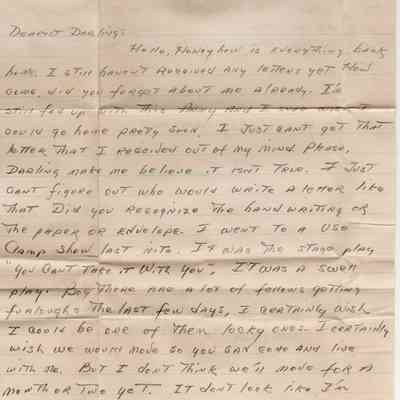 Dearest Darling:
Hello, Honey how is everything back
home. I still haven't received any letters yet How
come, did you forget about me already. I'm
still fed up with this Army and I sure wish I
could go home pretty soon, I just cant get that
letter that I received out of my mind Please,
Darling make me believe it isnt true. I just
cant figure out who would write a letter like
that Did you recognize the hand writing or
the paper or envelope. I went to a USO
Camp Show last nite. It was the stage play
"You Cant Take it With You", It was a swell
play. Boy there are a lot of fellows getting
furloughs the last few days, I certainly wish
I could be one of them lucky ones. I certainly
wish we would move so you can come and live
with me. But I don't think we'll move for a
month or two yet. It dont look like I'm